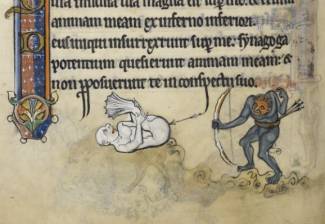 tua magna
animam meam ex inferno inferiori.
eus iniqui insurrexerunt sup me. synagoga
potentum quesierunt animam meam: &
non pposuerunt te in conspectu suo.